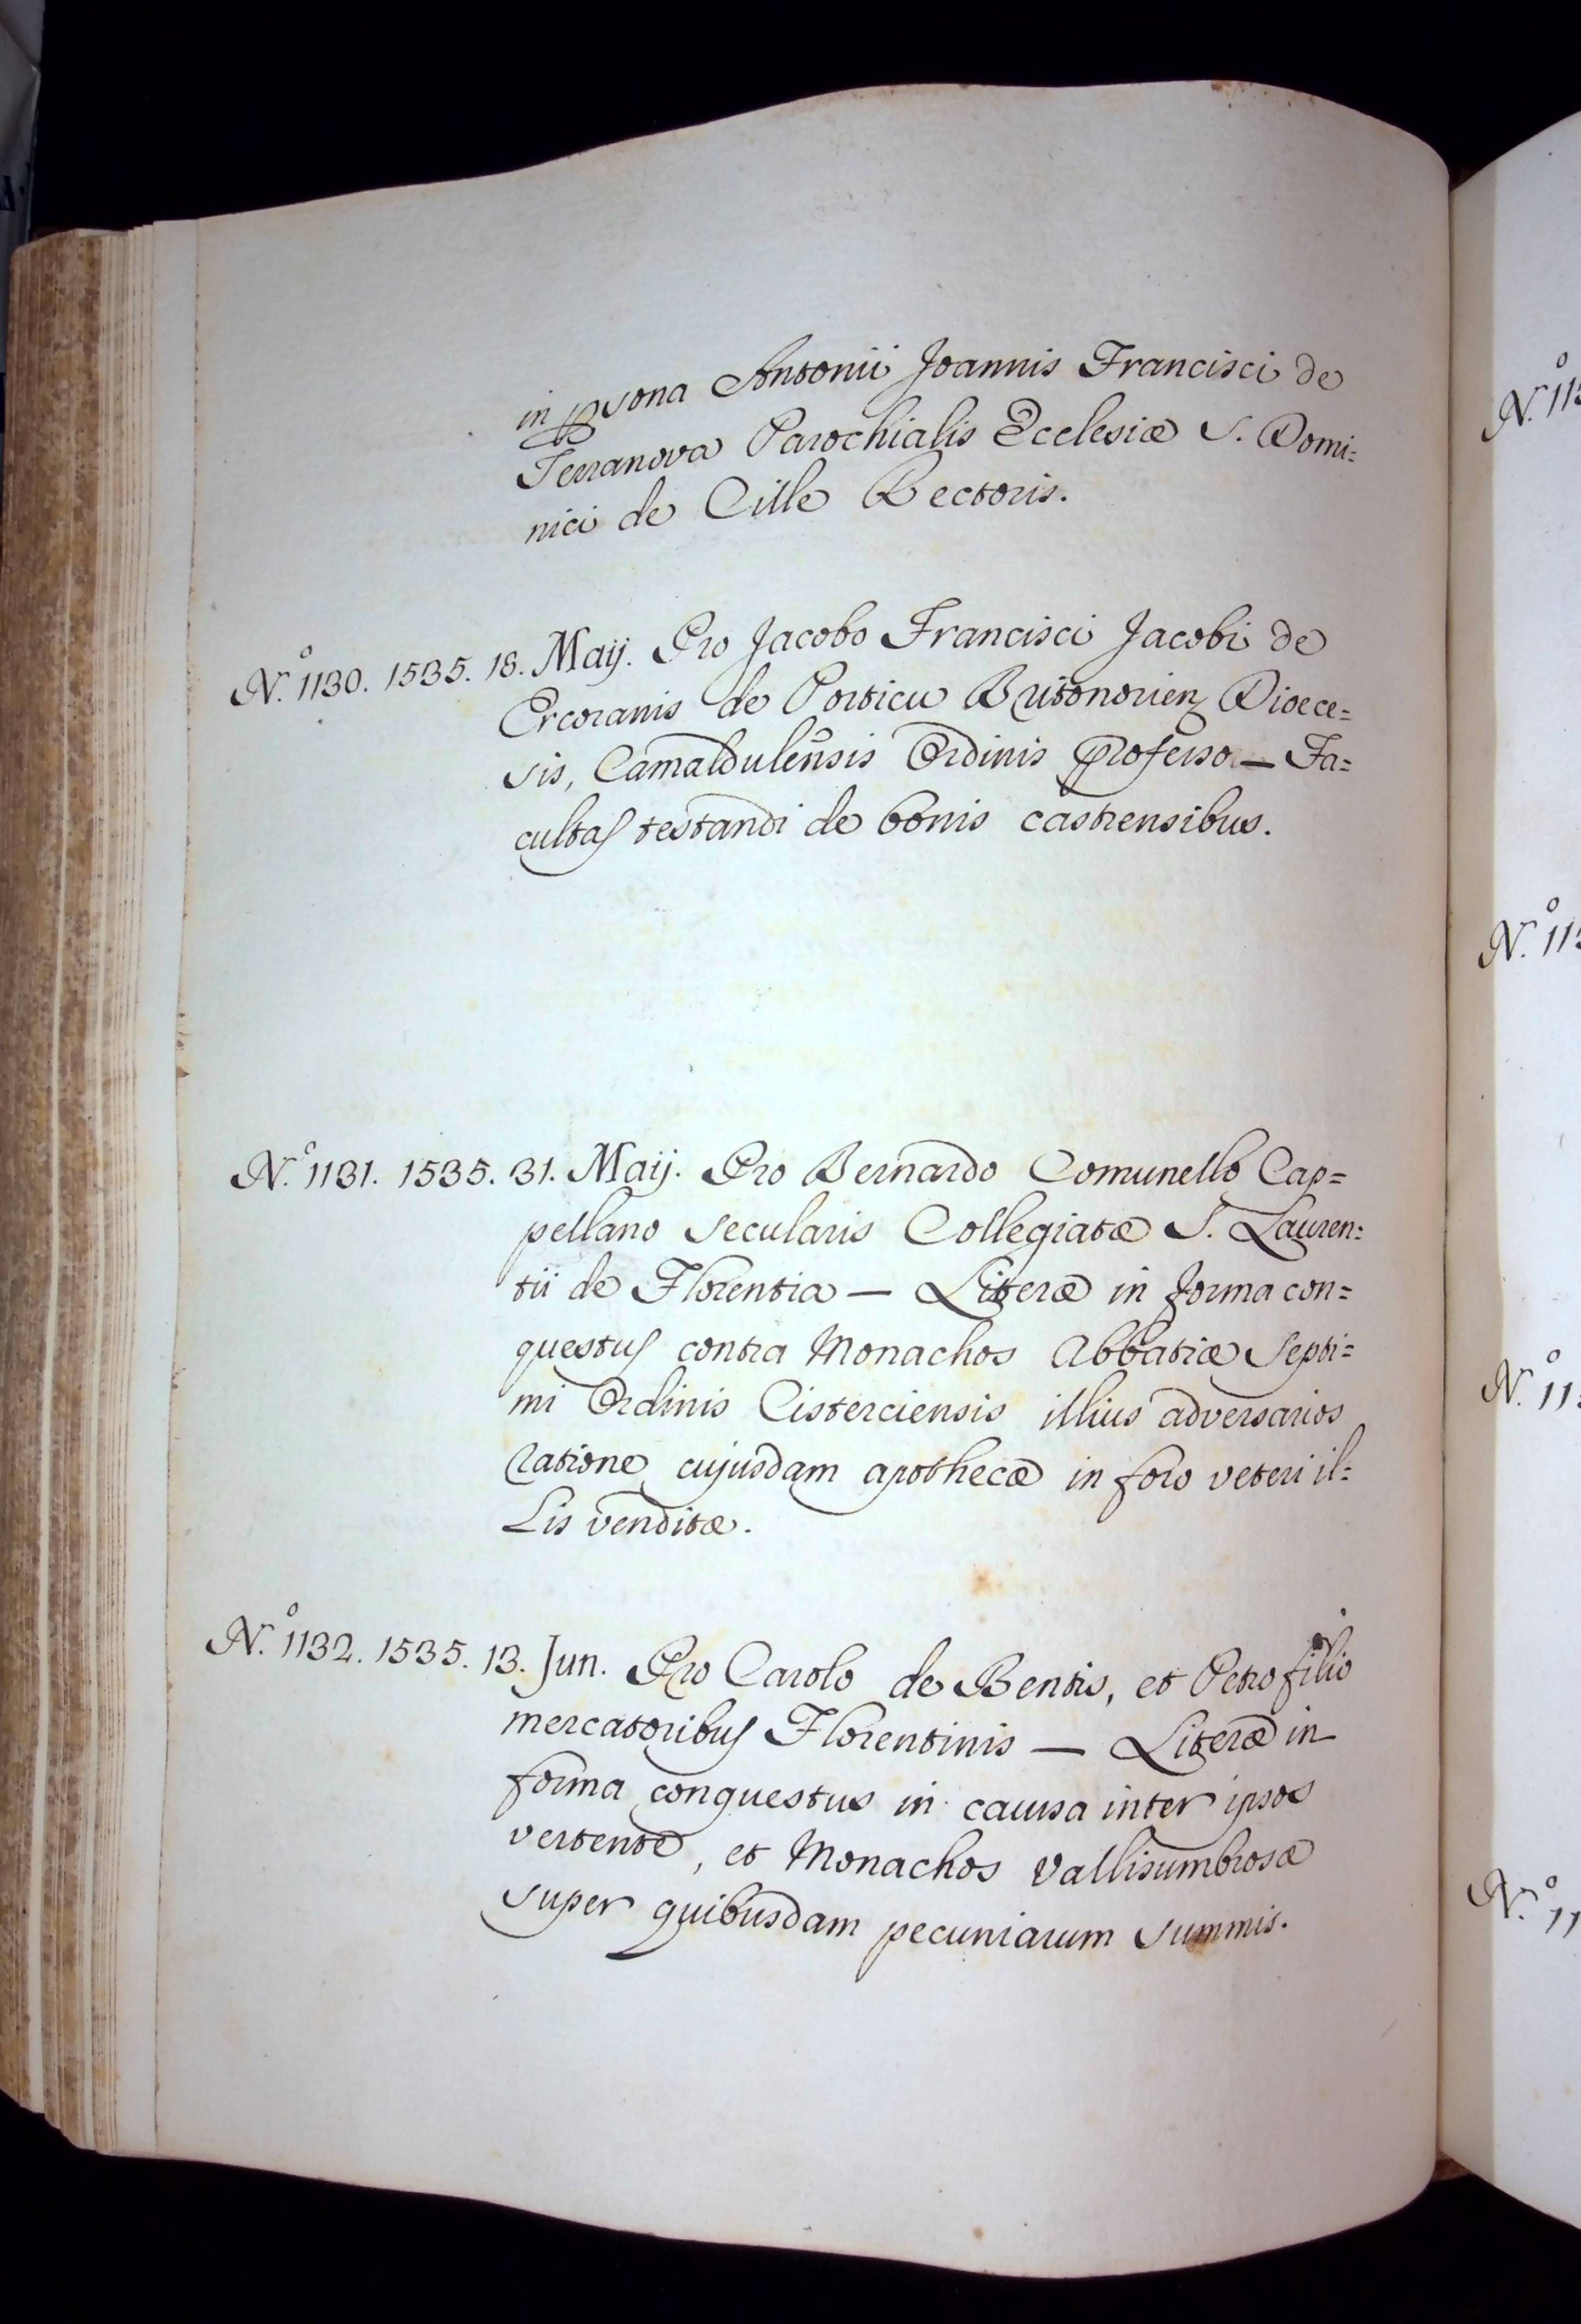 in psona Antonii Joannis Francisci de
Terranova Parochialis Ecclesiæ S. Domi=
nici de Cille Rectoris.
N.º 1130. 1535. 18. Maij. Pro Jacobo Francisci Jacobi de
Ercoranis de Porticu Britonorien Dioece=
sis, Camaldulensis Ordinis Professo — Fa=
cultas testandi de bonis castrensibus.
N.º 1131. 1535. 31. Maij. Pro Bernardo Comunello Cap=
pellano secularis Collegiatæ S. Lauren=
tii de Florentia — Literæ in forma con=
questus contra Monachos Abbatiæ Septi=
mi Ordinis Cisterciensis illius adversarios
ratione cujusdam apothecæ in foro veteri il=
lis venditæ.
N.º 1132. 1535. 13. Jun. Pro Carolo de Bentis, et Petro filio
mercatoribus Florentinis — Literæ in
forma conquestus in causa inter ipsos
vertente, et Monachos Vallisumbrosæ
super quibusdam pecuniarum summis.
N.º 11
N.º 11
N.º 11
N.º 11